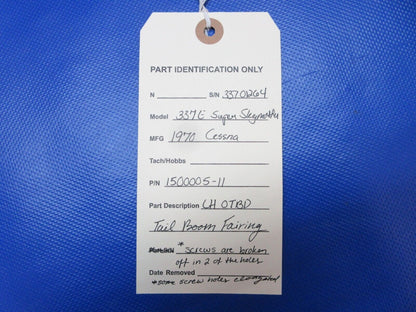 PART IDENTIFICATION ONLY
N S/N 33701264
Model 337E Super Skymaster
MFG 1970 Cessna
Tach/Hobbs
P/N 1500005-11
Part Description LH OTBD
Tail Boom Fairing
* screws are broken
off in 2 of the holes
Date Removed
*some screw holes elongated